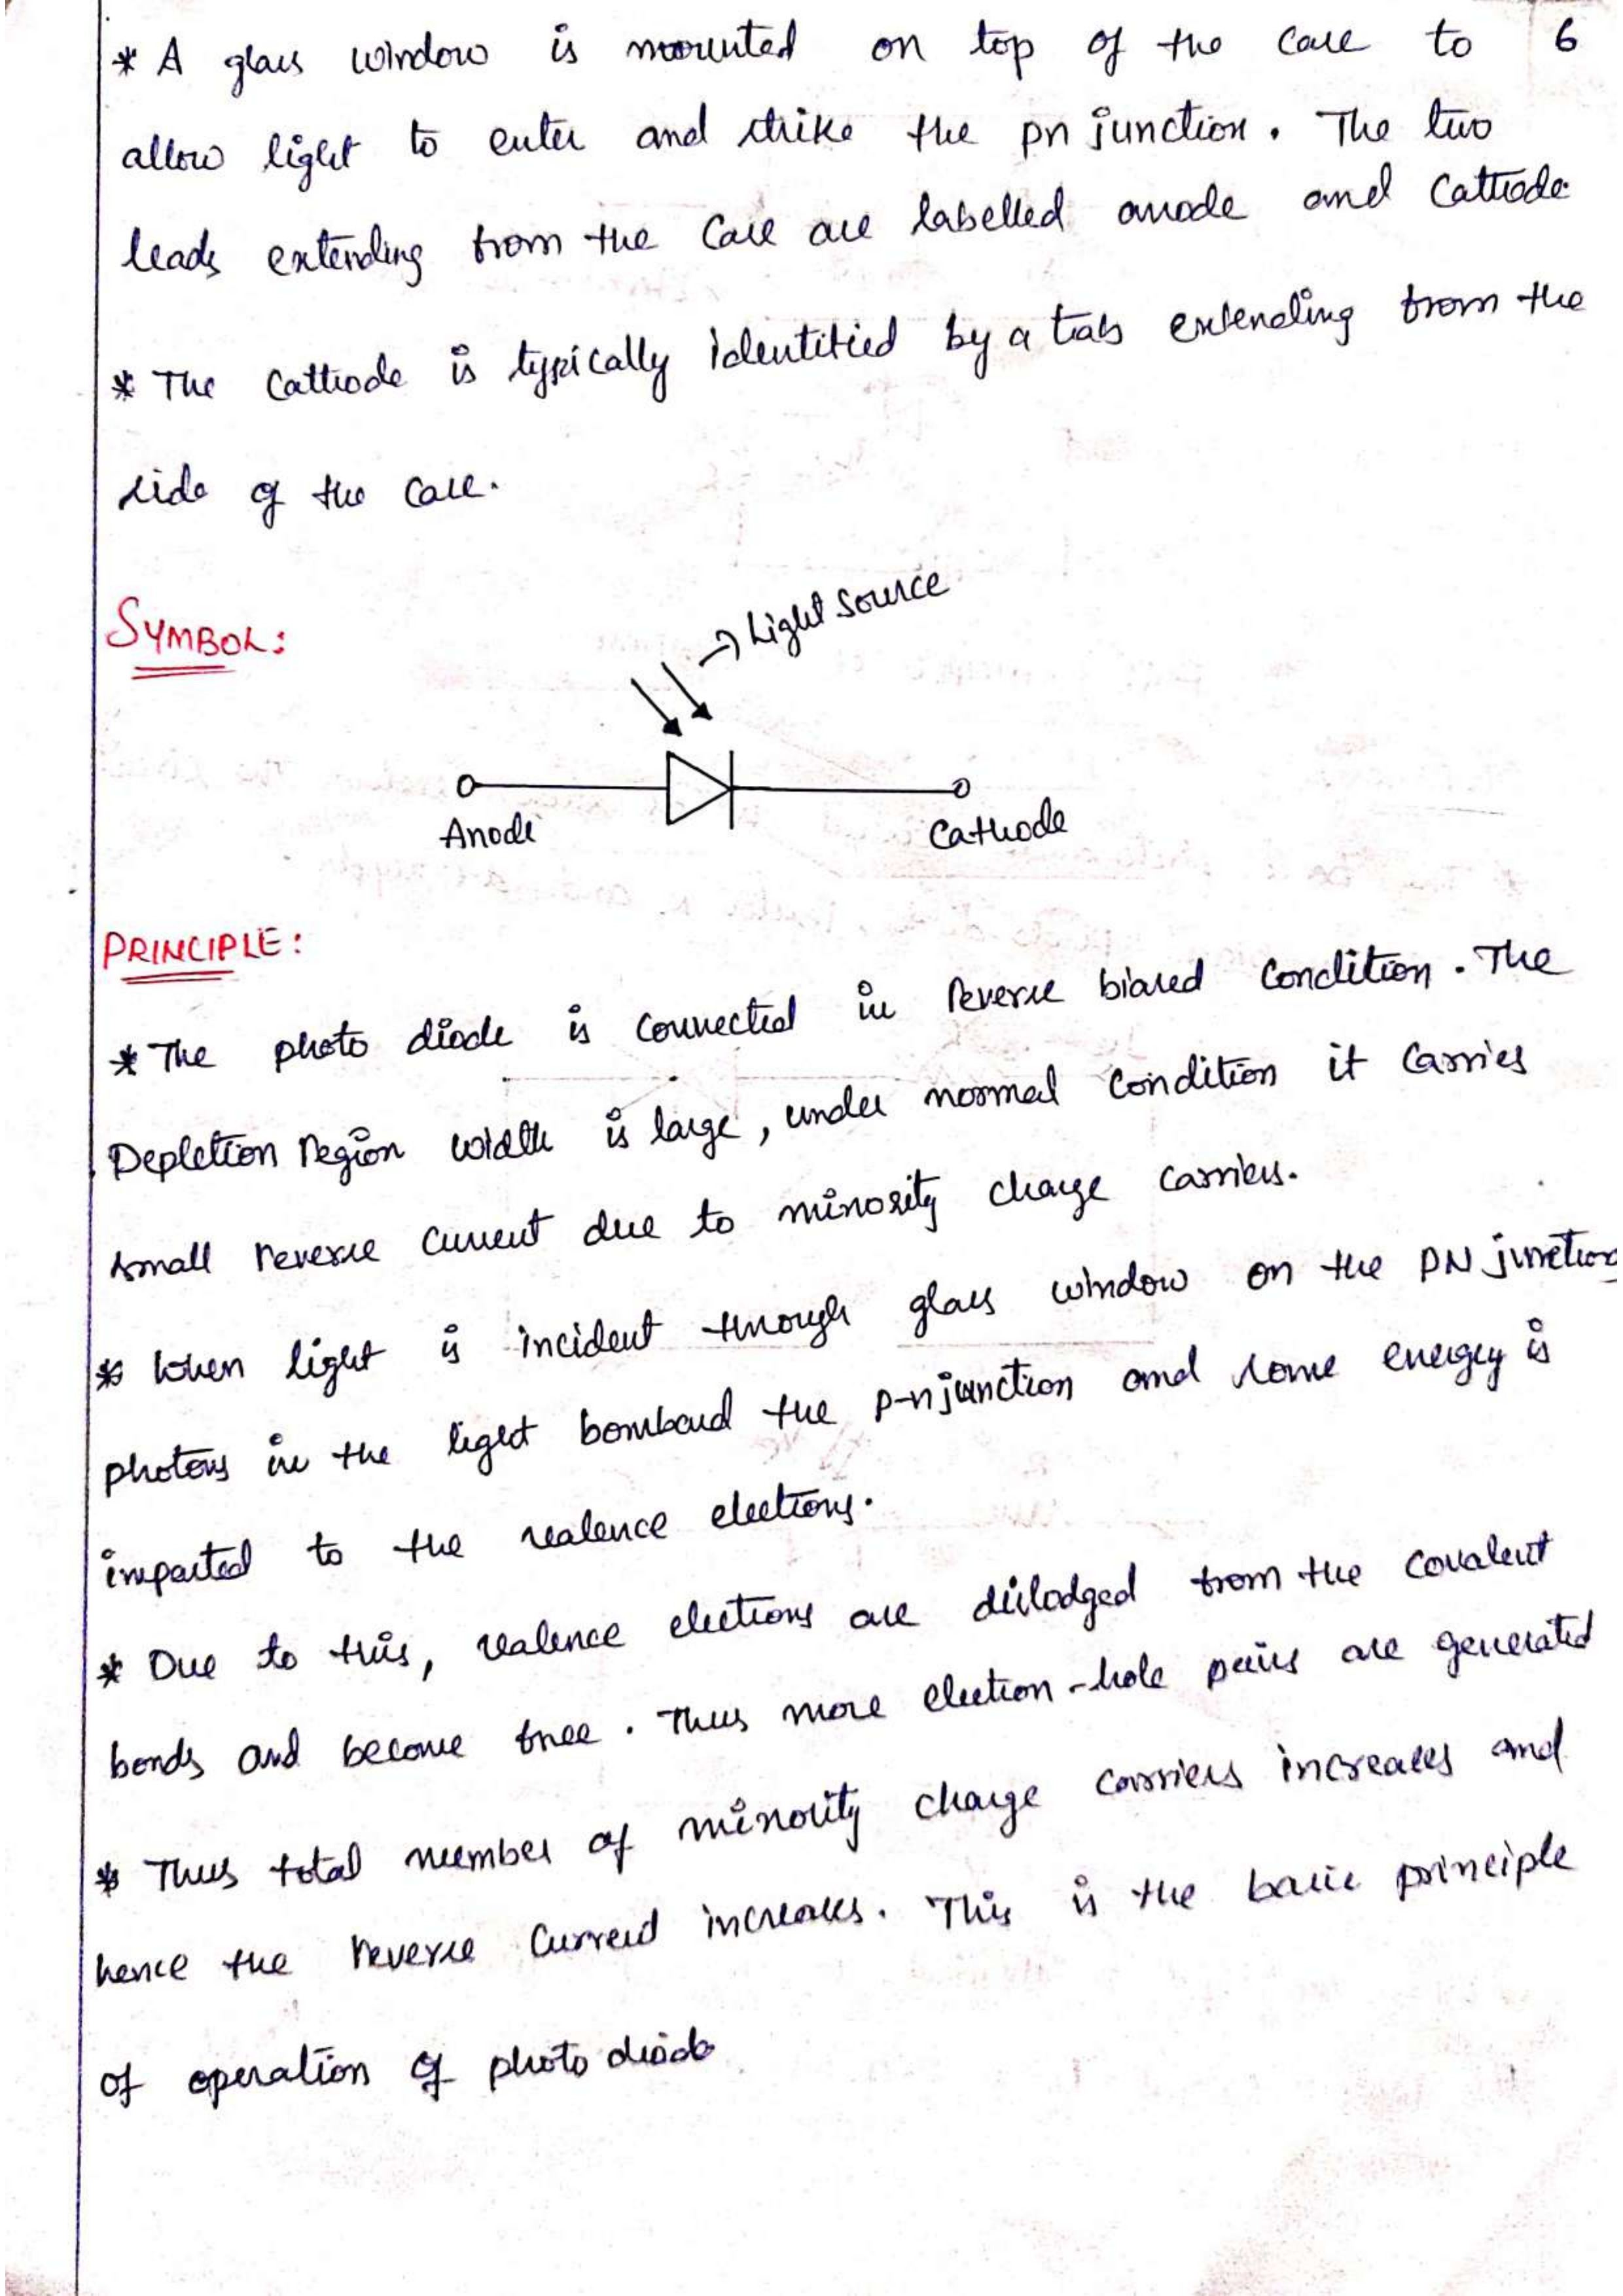 * A glass window is mounted on top of the case to 6
allow light to enter and strike the pn junction. The two
leads extending from the case are labelled anode and cathode
* The cathode is typically identified by a tab extending from the
side of the case.
SYMBOL:
→ Light Source
Anode
Cathode
PRINCIPLE:
* The photo diode is connected in Reverse biased condition. The
Depletion region width is large, under normal condition it carries
small reverse current due to minority charge carriers.
* When light is incident through glass window on the PN junction
photons in the light bombard the p-n junction and some energy is
imparted to the valence electrons.
* Due to this, valence electrons are dislodged from the covalent
bonds and become free. Thus more electron-hole pairs are generated
* Thus total number of minority charge carriers increases and
hence the reverse current increases. This is the basic principle
of operation of photo diode